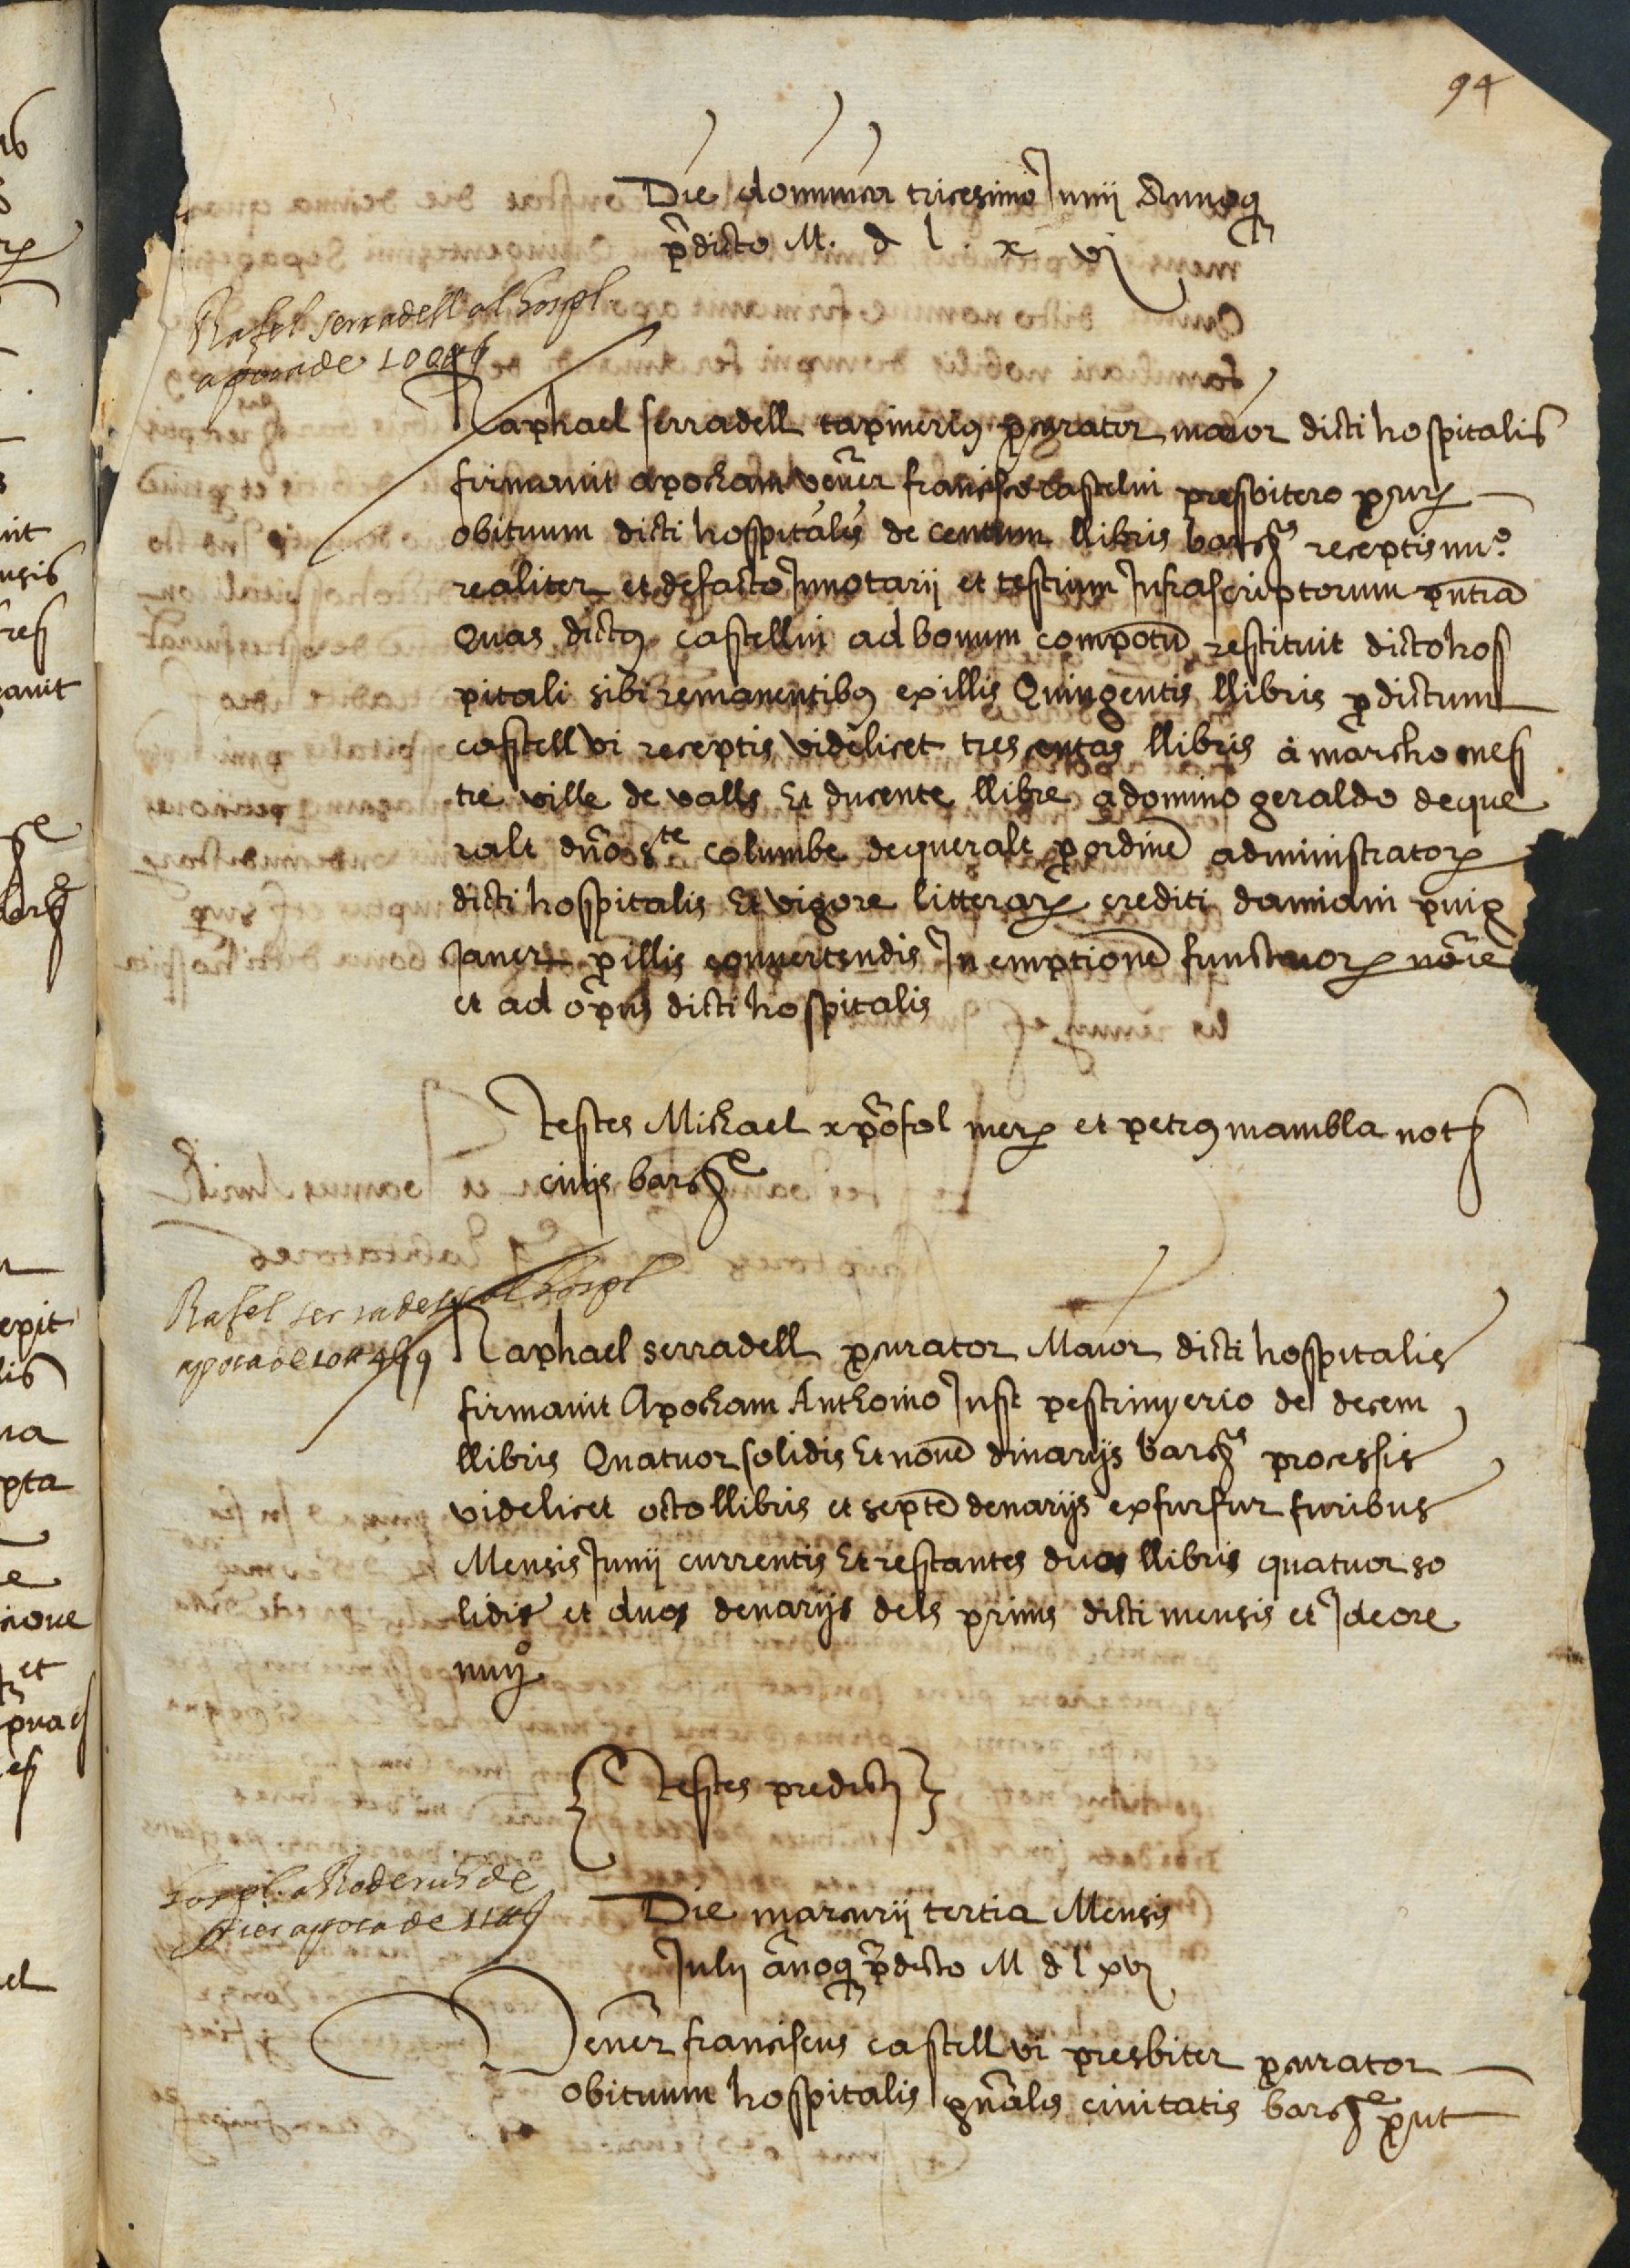 94
Die dominica tricesimo Junij Annoq
p̄dicto M. d l. x vj
Rafel serradell al hospl.
apoca de 100 ll
Raphael serradell tapinerius procurator maior dicti hospitalis
firmavit apocham vener francisco castelvi presbitero procur
obituum dicti hospitalis de centum llibris barch receptis nu.º
realiter et de facto In notarij et testium Infrascriptorum pntia
Quas dictus castellvi ad bonum compotu restituit dicto hos
pitali sibi remanentibus ex illis Quingentis llibris p dictum
castell vi receptis videlicet tres centas llibris a marcho mes
tre ville de valls Et ducente llibre a domino geraldo de que
ralt dño S.te columbe de queralt p ordine administrator
dicti hospitalis Et vigore litterar crediti damiani puig
Janer p illis convertendis In emptione functuor noie
et ad opus dicti hospitalis
Testes Michael xpofol mer et petrus mambla not
civis barche
Rafel serradell al hospl
apoca de 10 ll 4 s 9
Raphael serradell procurator Maior dicti hospitalis
firmavit Apocham Anthonio Just pestrinyerio de decem
llibris Quatuor solidis Et nove dinarijs barche processis
videlicet octo llibris et septe denarijs ex furfur furibus
Mensis Junij currentis Et restantes duos llibris quatuor so
lidis et duos denarijs dels prims dicti mensis et Ideo re
nuy
Testes predicti
hospl. a Roderich de
apoca de 11 ll
Die marcurij tertia Mensis
Julij anoq p̄dicto M d l xvj
Vener franciscus castell vi presbiter procurator
obituum hospitalis gnalis civitatis barche put